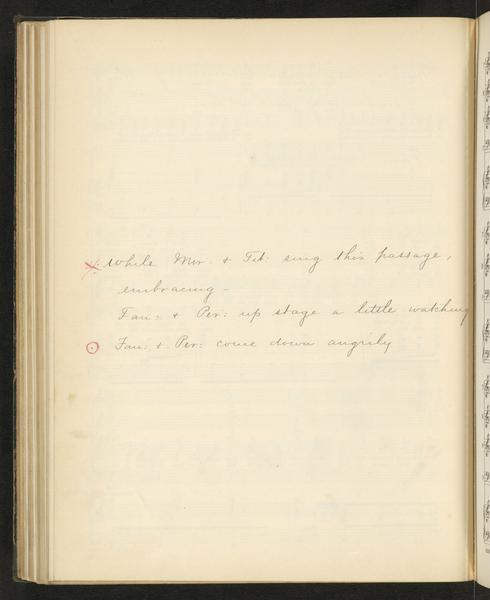 While Mor: & Tit: sing this passage,
embracing –
Fan: & Per: up stage a little watching
Fan: & Per: come down angrily